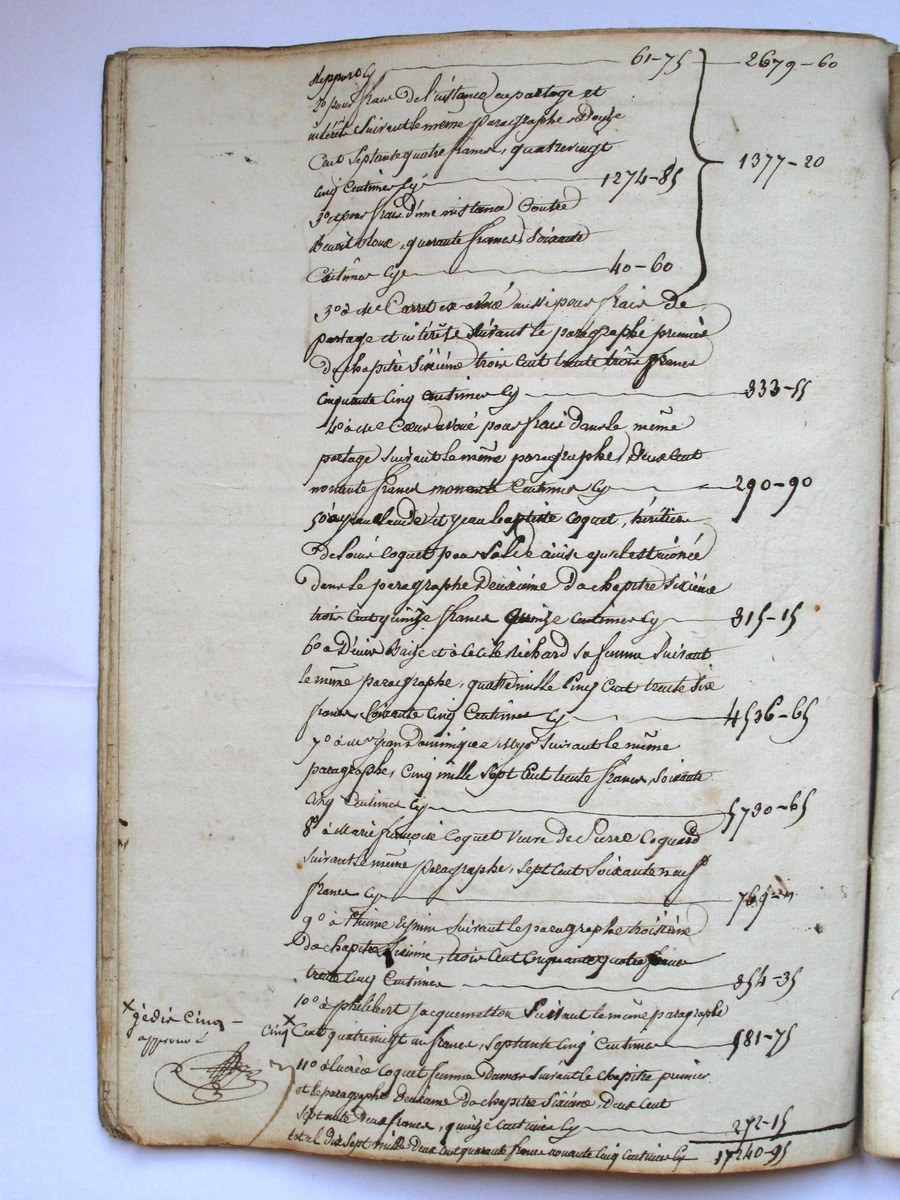 61-75 2679-60
2o pour frais de l'instance en partage et
intérêts suivant le même paragraphe, Douze
Cent Septante quatre francs, quatrevingt
Cinq Centimes Cy 1274-85 1377-20
3o pour frais d'une instance Contre
Benoit, quarante francs Soixante
Centimes Cy 40-60
3o à Me Carret ex avoué aussi pour frais de
partage et intérêts suivant le paragraphe premier
du chapitre Sixième trois Cent trente trois francs
Cinquante Cinq Centimes Cy 333-55
4o à Me Cœur avoué pour frais dans le même
partage Suivant le même paragraphe, Deux Cent
nonante francs nonante Centimes Cy 290-90
5o à Jean Claude et Jean Baptiste Coquet, héritiers
de Louis Coquet pour Solde ainsi qu'il est énoncé
dans le paragraphe Deuxième du chapitre Sixième
trois Cent quinze francs Quinze Centimes Cy 315-15
6o à Denis Baise et à Cécile Richard Sa femme Suivant
le même paragraphe, quatre mille Cinq Cent trente Six
francs Soixante Cinq Centimes Cy 4536-65
7o à Mr Jean Dominique Suivant le même
paragraphe, Cinq mille Sept Cent trente francs, Soixante
Cinq Centimes Cy 5730-65
8o à Marie françoise Coquet Veuve de Pierre Coquard
Suivant le même paragraphe, Sept Cent Soixante neuf
francs Cy 769-"
9o à suivant le paragraphe troisième
du chapitre Sixième, trois Cent Cinquante quatre francs
trente Cinq Centimes 354-35
10o à philibert Jacquemetton Suivant le même paragraphe
x Cinq Cent quatrevingt un francs, Septante Cinq Centimes 581-75
x je dis Cinq
approuvé
11o à Lucrèce Coquet femme Damas Suivant le Chapitre premier
et le paragraphe deuxième du chapitre Sixième, deux Cent
Septante Deux francs, quinze Centimes Cy 272-15
total Dix Sept mille Deux Cent quarante francs nonante Cinq Centimes Cy 17240-95